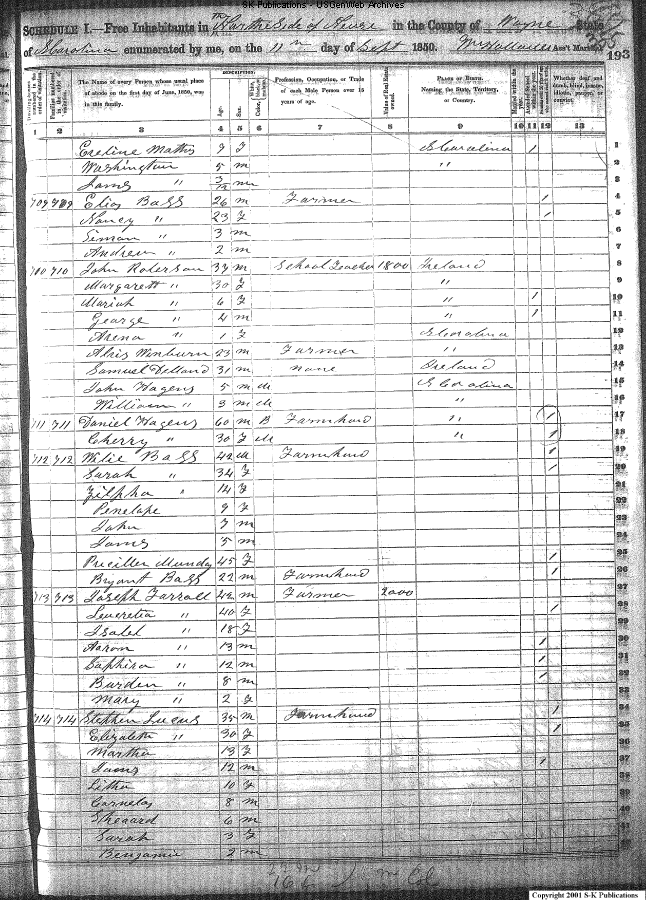 SK Publications - USGenWeb Archives
SCHEDULE I.—Free Inhabitants in the Side of Neuse in the County of Wayne State
of N Carolina enumerated by me, on the 11th day of Sept 1850. Ass't Marshal 193
DESCRIPTION.
The Name of every Person whose usual place of abode on the first day of June, 1850, was in this family.
Age. Sex.
Profession, Occupation, or Trade of each Male Person over 15 years of age.
Value of Real Estate owned.
PLACE OF BIRTH. Naming the State, Territory, or Country.
Whether deaf and dumb, blind, insane, idiotic, pauper, or convict.
1 2 3 4 5 6 7 8 9 10 11 12 13
Eveline Mathis 9 F N Carolina 1 1
Washington 5 m " 2
James " 3/12 m 3
709 709 Elias Bass 26 m Farmer 1 4
Nancy " 23 F 1 5
Simon " 3 m 6
Andrew " 2 m 7
710 710 John Roberson 37 m School Teacher 1800 Ireland 8
Margarett " 30 F "
Mariah " 6 F " 1 10
George " 4 m " 1 11
Arena " 1 F N Carolina 12
Winburn 23 m Farmer " 13
Samuel 31 m None Ireland 14
John Hagens 5 m M N Carolina 15
William " 3 m M "
711 711 Daniel Hagens 60 m B Farmhand " 1 17
Cherry " 30 F M " 1 18
712 712 Wilie Bass 42 M Farmhand 1 19
Sarah " 34 F 1 20
Zilpha " 14 F
Penelape 9 F
John 7 m 23
James 5 m 24
Pricilla Munday 45 F 1 25
Bryant Bass 22 m Farmhand 1 26
713 713 Joseph Farrall 42 m Farmer 2000 27
Lucretia " 40 F 1 28
Isabel " 18 F
Aaron " 13 m 1 30
Saphira " 12 m 1 31
Burden " 8 m 1 32
Mary " 2 F 33
714 714 Stephen Lucas 35 m Farmhand 1 34
Elizabeth " 30 F 1 35
Martha 13 F 36
James 12 m 1 37
Litha 10 F 38
Cornelas 8 m 39
Sheaard 6 m 40
Sarah 3 F
Benjamin 2 m
Copyright 2001 S-K Publications